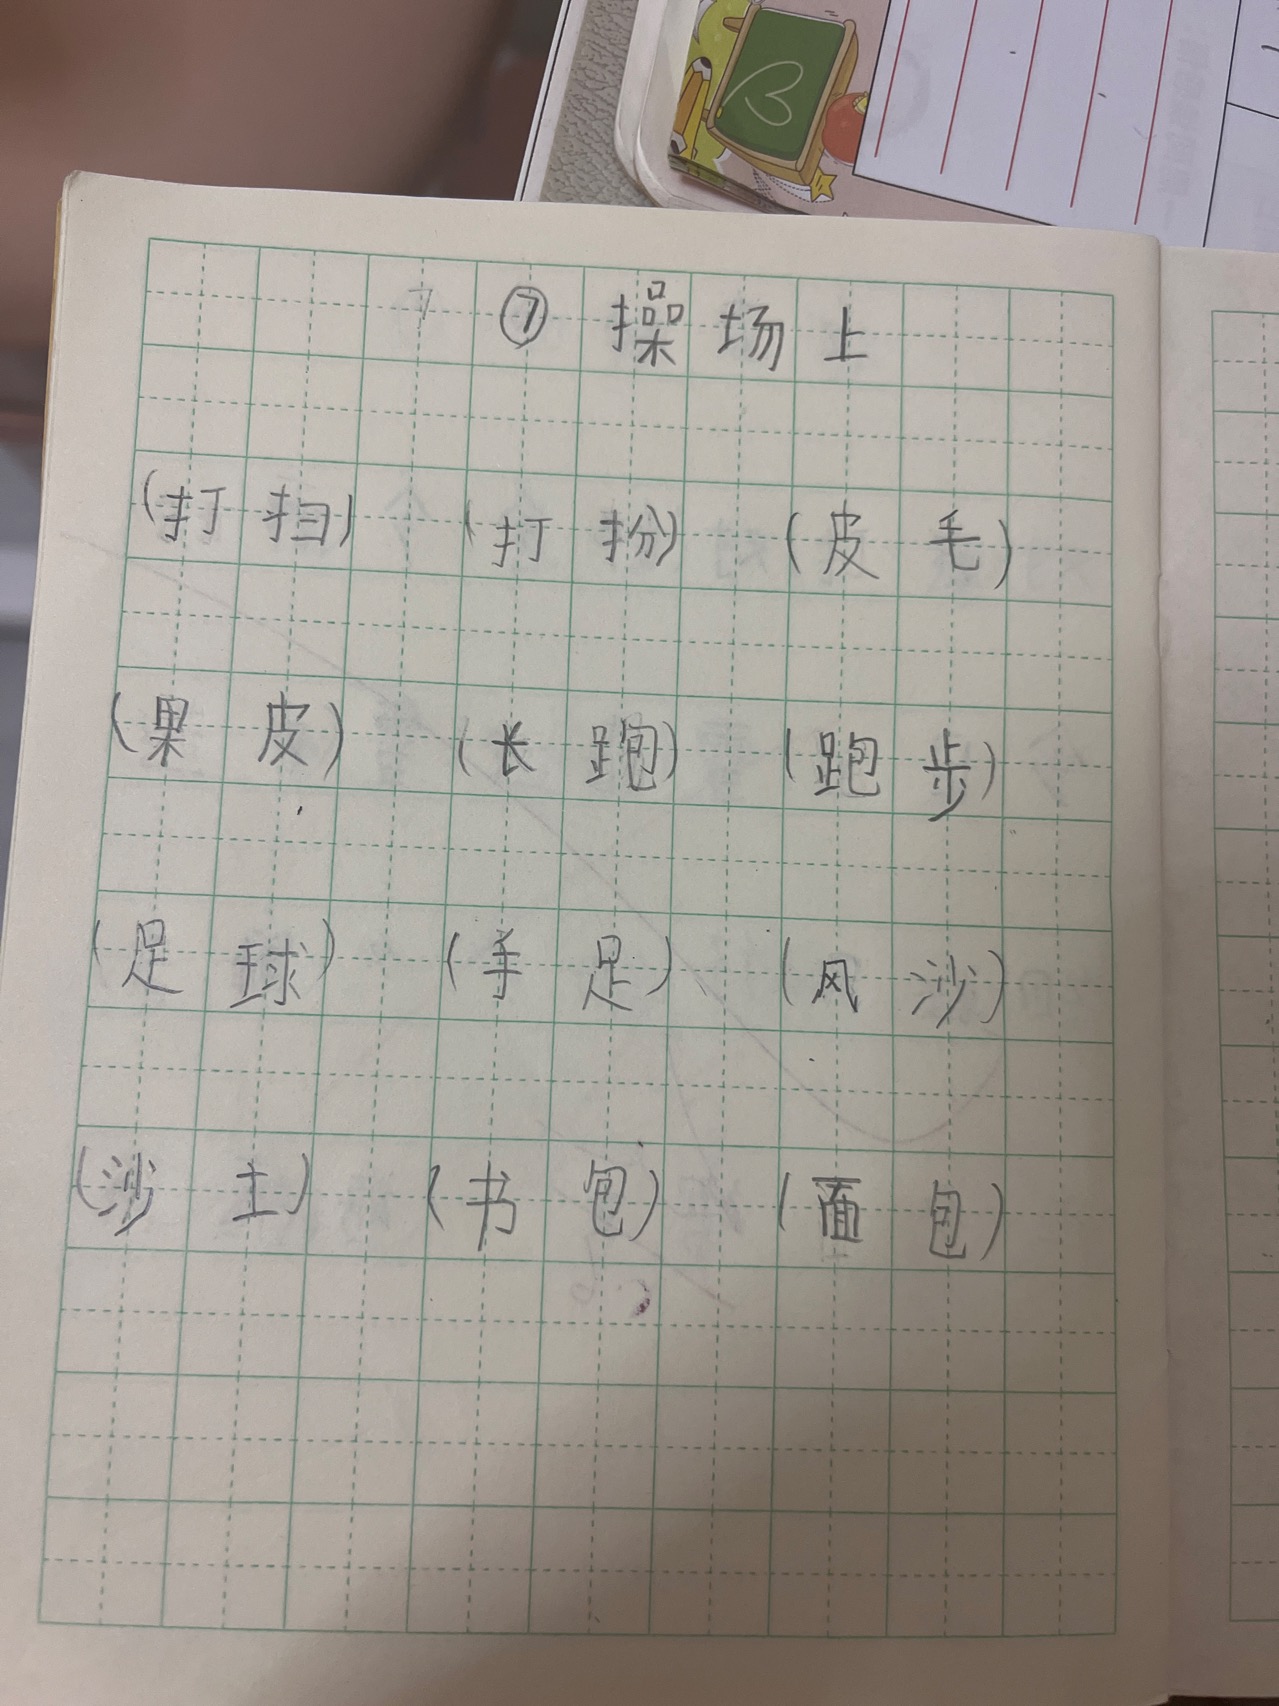 ⑦ 操场上
(打扫) (打扮) (皮毛)
(果皮) (长跑) (跑步)
(足球) (手足) (风沙)
(沙土) (书包) (面包)